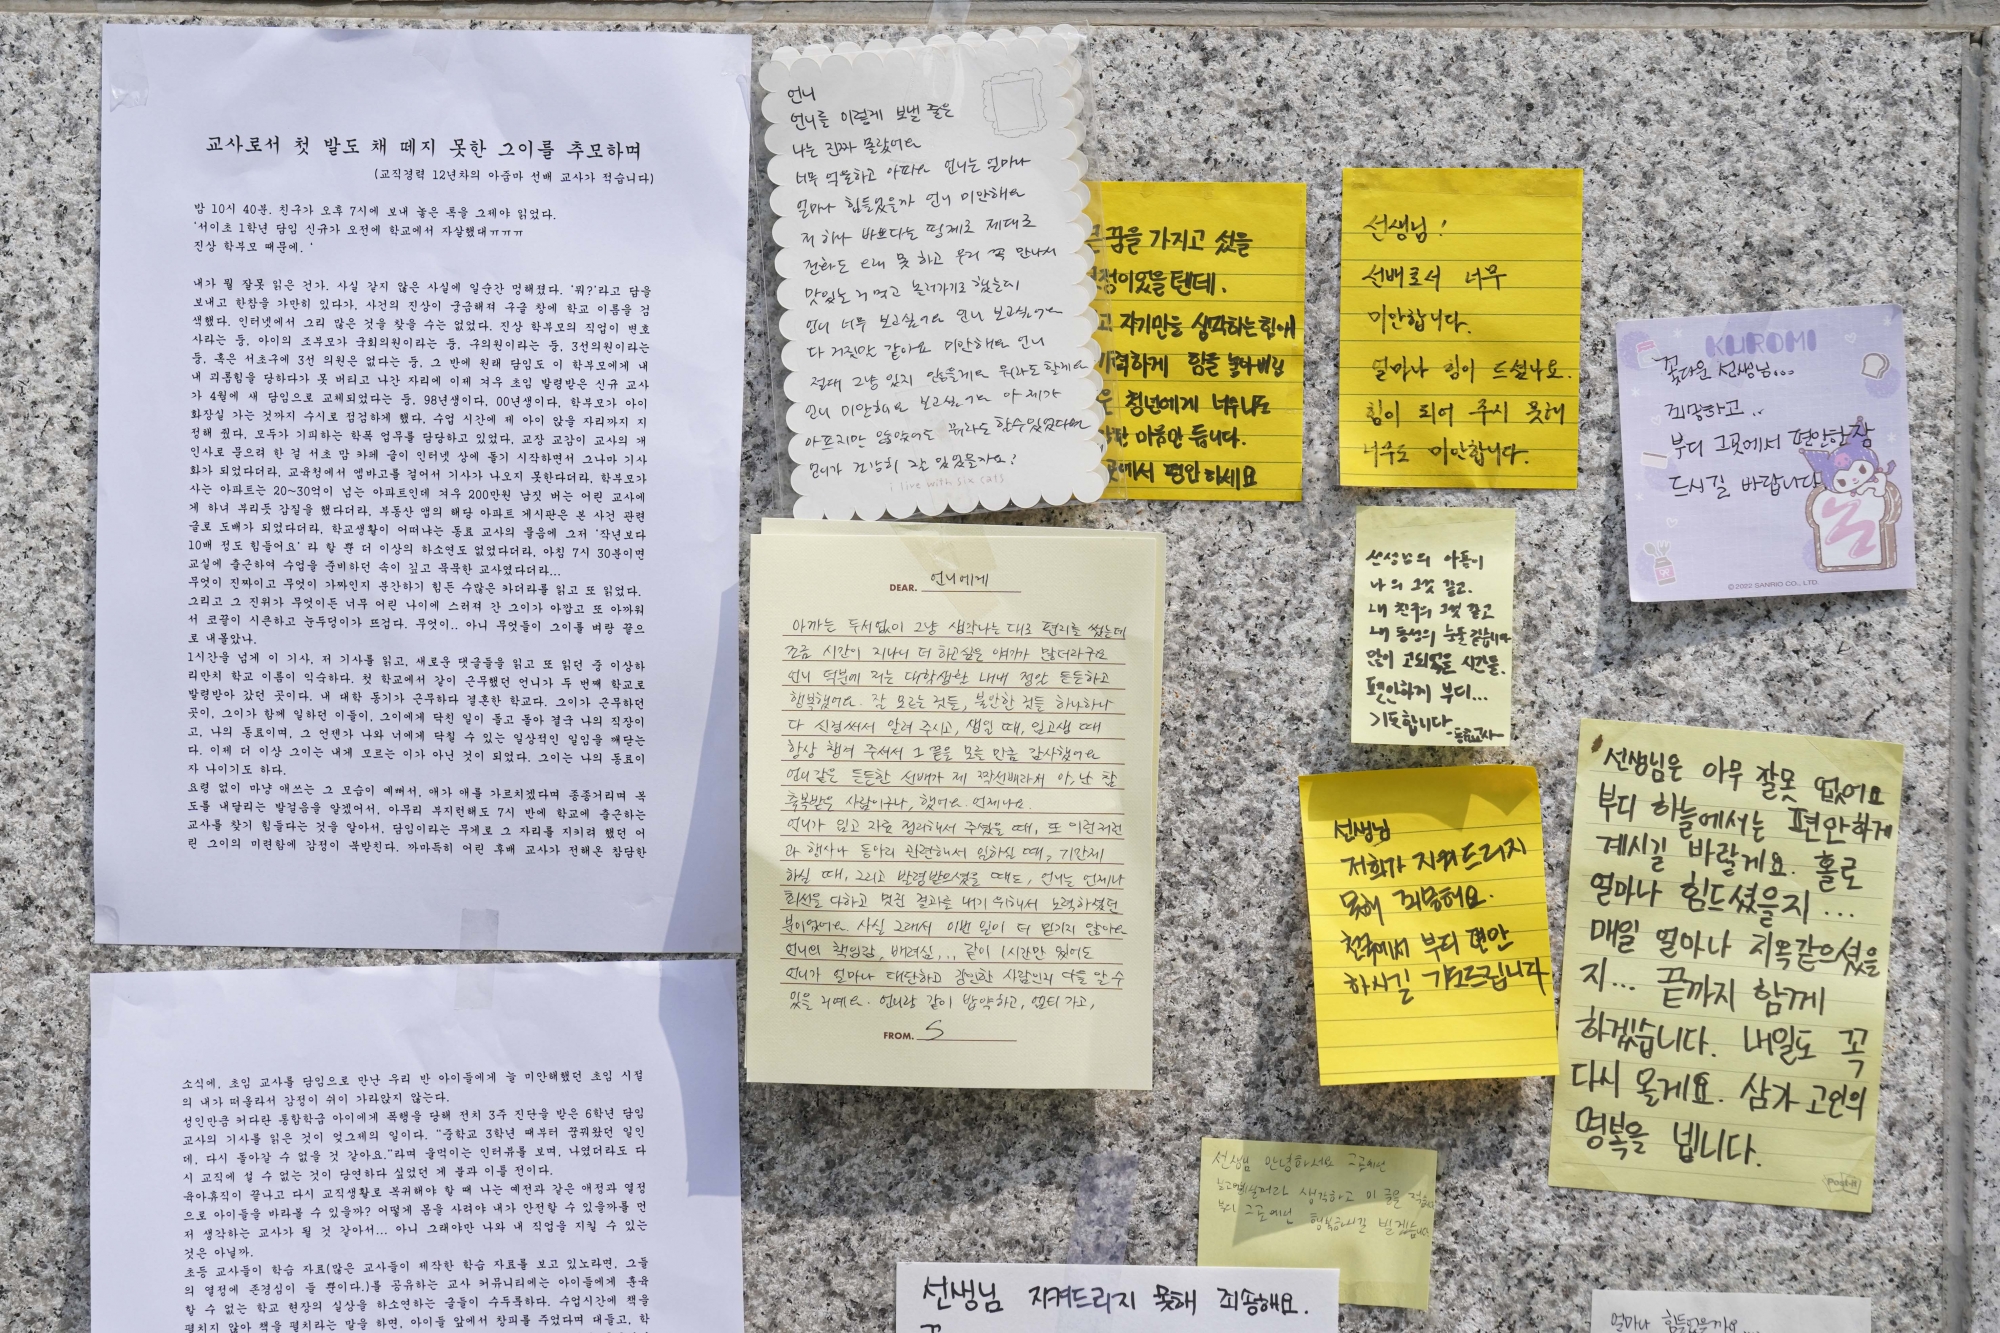 교사로서 첫 발도 채 떼지 못한 그이를 추모하며
(교직경력 12년차의 아줌마 선배 교사가 적습니다)
밤 10시 40분. 친구가 오후 7시에 보내 놓은 톡을 그제야 읽었다.
'서이초 1학년 담임 신규가 오전에 학교에서 자살했대ㅠㅠㅠ
진상 학부모 때문에. '
내가 뭘 잘못 읽은 건가. 사실 같지 않은 사실에 일순간 멍해졌다. '뭐?'라고 답을
보내고 한참을 가만히 있다가, 사건의 진상이 궁금해져 구글 창에 학교 이름을 검
색했다. 인터넷에서 그리 많은 것을 찾을 수는 없었다. 진상 학부모의 직업이 변호
사라는 둥, 아이의 조부모가 국회의원이라는 둥, 구의원이라는 둥, 3선의원이라는
둥, 혹은 서초구에 3선 의원은 없다는 둥, 그 반에 원래 담임도 이 학부모에게 내
내 괴롭힘을 당하다가 못 버티고 나간 자리에 이제 겨우 초임 발령받은 신규 교사
가 4월에 새 담임으로 교체되었다는 둥, 98년생이다, 00년생이다, 학부모가 아이
화장실 가는 것까지 수시로 점검하게 했다, 수업 시간에 제 아이 앉을 자리까지 지
정해 줬다, 모두가 기피하는 학폭 업무를 담당하고 있었다, 교장 교감이 교사의 개
인사로 묻으려 한 걸 서초 맘 카페 글이 인터넷 상에 돌기 시작하면서 그나마 기사
화가 되었다더라, 교육청에서 엠바고를 걸어서 기사가 나오지 못한다더라, 학부모가
사는 아파트는 20~30억이 넘는 아파트인데 겨우 200만원 남짓 버는 어린 교사에
게 하녀 부리듯 갑질을 했다더라, 부동산 앱의 해당 아파트 게시판은 본 사건 관련
글로 도배가 되었다더라, 학교생활이 어떠냐는 동료 교사의 물음에 그저 '작년보다
10배 정도 힘들어요' 라 할 뿐 더 이상의 하소연도 없었다더라, 아침 7시 30분이면
교실에 출근하여 수업을 준비하던 속이 깊고 묵묵한 교사였다더라...
무엇이 진짜이고 무엇이 가짜인지 분간하기 힘든 수많은 카더라를 읽고 또 읽었다.
그리고 그 진위가 무엇이든 너무 어린 나이에 스러져 간 그이가 아깝고 또 아까워
서 코끝이 시큰하고 눈두덩이가 뜨겁다. 무엇이.. 아니 무엇들이 그이를 벼랑 끝으
로 내몰았나.
1시간을 넘게 이 기사, 저 기사를 읽고, 새로운 댓글들을 읽고 또 읽던 중 이상하
리만치 학교 이름이 익숙하다. 첫 학교에서 같이 근무했던 언니가 두 번째 학교로
발령받아 갔던 곳이다. 내 대학 동기가 근무하다 결혼한 학교다. 그이가 근무하던
곳이, 그이가 함께 일하던 이들이, 그이에게 닥친 일이 돌고 돌아 결국 나의 직장이
고, 나의 동료이며, 그 언젠가 나와 너에게 닥칠 수 있는 일상적인 일임을 깨닫는
다. 이제 더 이상 그이는 내게 모르는 이가 아닌 것이 되었다. 그이는 나의 동료이
자 나이기도 하다.
요령 없이 마냥 애쓰는 그 모습이 예뻐서, 애가 애를 가르치겠다며 종종거리며 복
도를 내달리는 발걸음을 알겠어서, 아무리 부지런해도 7시 반에 학교에 출근하는
교사를 찾기 힘들다는 것을 알아서, 담임이라는 무게로 그 자리를 지키려 했던 어
린 그이의 미련함에 감정이 북받친다. 까마득히 어린 후배 교사가 전해온 참담한
소식에, 초임 교사를 담임으로 만난 우리 반 아이들에게 늘 미안해했던 초임 시절
의 내가 떠올라서 감정이 쉬이 가라앉지 않는다.
성인만큼 커다란 통합학급 아이에게 폭행을 당해 전치 3주 진단을 받은 6학년 담임
교사의 기사를 읽은 것이 엊그제의 일이다. "중학교 3학년 때부터 꿈꿔왔던 일인
데, 다시 돌아갈 수 없을 것 같아요."라며 울먹이는 인터뷰를 보며, 나였더라도 다
시 교직에 설 수 없는 것이 당연하다 싶었던 게 불과 이틀 전이다.
육아휴직이 끝나고 다시 교직생활로 복귀해야 할 때 나는 예전과 같은 애정과 열정
으로 아이들을 바라볼 수 있을까? 어떻게 몸을 사려야 내가 안전할 수 있을까를 먼
저 생각하는 교사가 될 것 같아서... 아니 그래야만 나와 내 직업을 지킬 수 있는
것은 아닐까.
초등 교사들이 학습 자료(많은 교사들이 제작한 학습 자료를 보고 있노라면, 그들
의 열정에 존경심이 들 뿐이다.)를 공유하는 교사 커뮤니티에는 아이들에게 훈육
할 수 없는 학교 현장의 실상을 하소연하는 글들이 수두룩하다. 수업시간에 책을
펼치지 않아 책을 펼치라는 말을 하면, 아이들 앞에서 창피를 주었다며 대들고, 학
언니
언니를 이렇게 보낼 줄은
나는 진짜 몰랐어요
너무 억울하고 아파요 언니는 얼마나
얼마나 힘들었을까 언니 미안해요
저 하나 바쁘다는 핑계로 제대로
전화도 오래 못 하고 우리 꼭 만나서
맛있는 거 먹고 놀러가기로 했는데
언니 너무 보고싶어요 언니 보고싶어요
다 거짓말 같아요 미안해요 언니
절대 그냥 있지 않을게요 뭐라도 할게요
언니 미안해요 보고싶어요 아 제가
아프지만 않았어도 뭐라도 할수있었다면
언니가 건강히 잘 있었을까요?
i live with six cats
DEAR. 언니에게
아까는 두서없이 그냥 생각나는 대로 편지를 썼는데
조금 시간이 지나니 더 하고싶은 얘기가 많더라구요
언니 덕분에 저는 대학생활 내내 정말 든든하고
행복했어요. 잘 모르는 것들, 불안한 것들 하나하나
다 신경써서 알려 주시고, 생일 때, 임고생 때
항상 챙겨 주셔서 그 끝을 모를 만큼 감사했어요
언니같은 든든한 선배가 제 짝선배라서 아, 난 참
축복받은 사람이구나, 했어요. 언제나요.
언니가 임고 자료 정리해서 주셨을 때, 또 이런저런
과 행사나 동아리 관련해서 임하실 때, 기간제
하실 때, 그리고 발령받으셨을 때도, 언니는 언제나
최선을 다하고 멋진 결과를 내기 위해서 노력하셨던
분이었어요. 사실 그래서 이번 일이 더 믿기지 않아요
언니의 책임감, 배려심,... 같이 1시간만 있어도
언니가 얼마나 대단하고 강인한 사람인지 다들 알 수
있을 거예요. 언니랑 같이 밥약하고, 엠티 가고,
FROM. S
꿈을 가지고 섰을
텐데.
고 자기만을 생각하는 힘에
힘을 놓아버린
청년에게 너무나도
마음만 듭니다.
편안하세요
선생님!
선배로서 너무
미안합니다.
얼마나 힘이 드셨나요.
힘이 되어 주시 못해
너무도 미안합니다.
KUROMI
꽃다운 선생님...
죄송하고..
부디 그곳에서 편안한 잠
드시길 바랍니다
©2022 SANRIO CO., LTD.
선생님의 아픔이
나의 것 같고.
내 친구의 것 같고
내 동생의 눈물 같습니다
많이 고되었을 시간을.
편안하게 부디...
기도합니다.
동료교사
선생님
저희가 지켜드리지
못해 죄송해요.
천국에서 부디 편안
하시길 기도드립니다
선생님은 아무 잘못 없어요
부디 하늘에서는 편안하게
계시길 바랄게요. 홀로
얼마나 힘드셨을지...
매일 얼마나 지옥같으셨을
지... 끝까지 함께
하겠습니다. 내일도 꼭
다시 올게요. 삼가 고인의
명복을 빕니다.
Post-it
선생님 안녕하세요 그곳에선
생각하고 이 글을
부디 그곳에선 행복하시길 빌겠습니다
선생님 지켜드리지 못해 죄송해요.
얼마나 힘들었을까요...